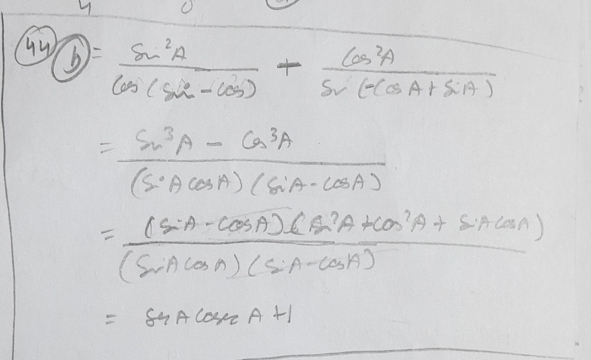 44 b = Sin²A / Cos (Sin - Cos) + Cos²A / Sin (-Cos A + SiA)
= Sin³A - Cos³A / (SiA CosA) (SiA - CosA)
= (SiA - CosA) (Sin²A + Cos²A + SiA CosA) / (SinA CosA) (SiA - CosA)
= Sec A Cosec A + 1